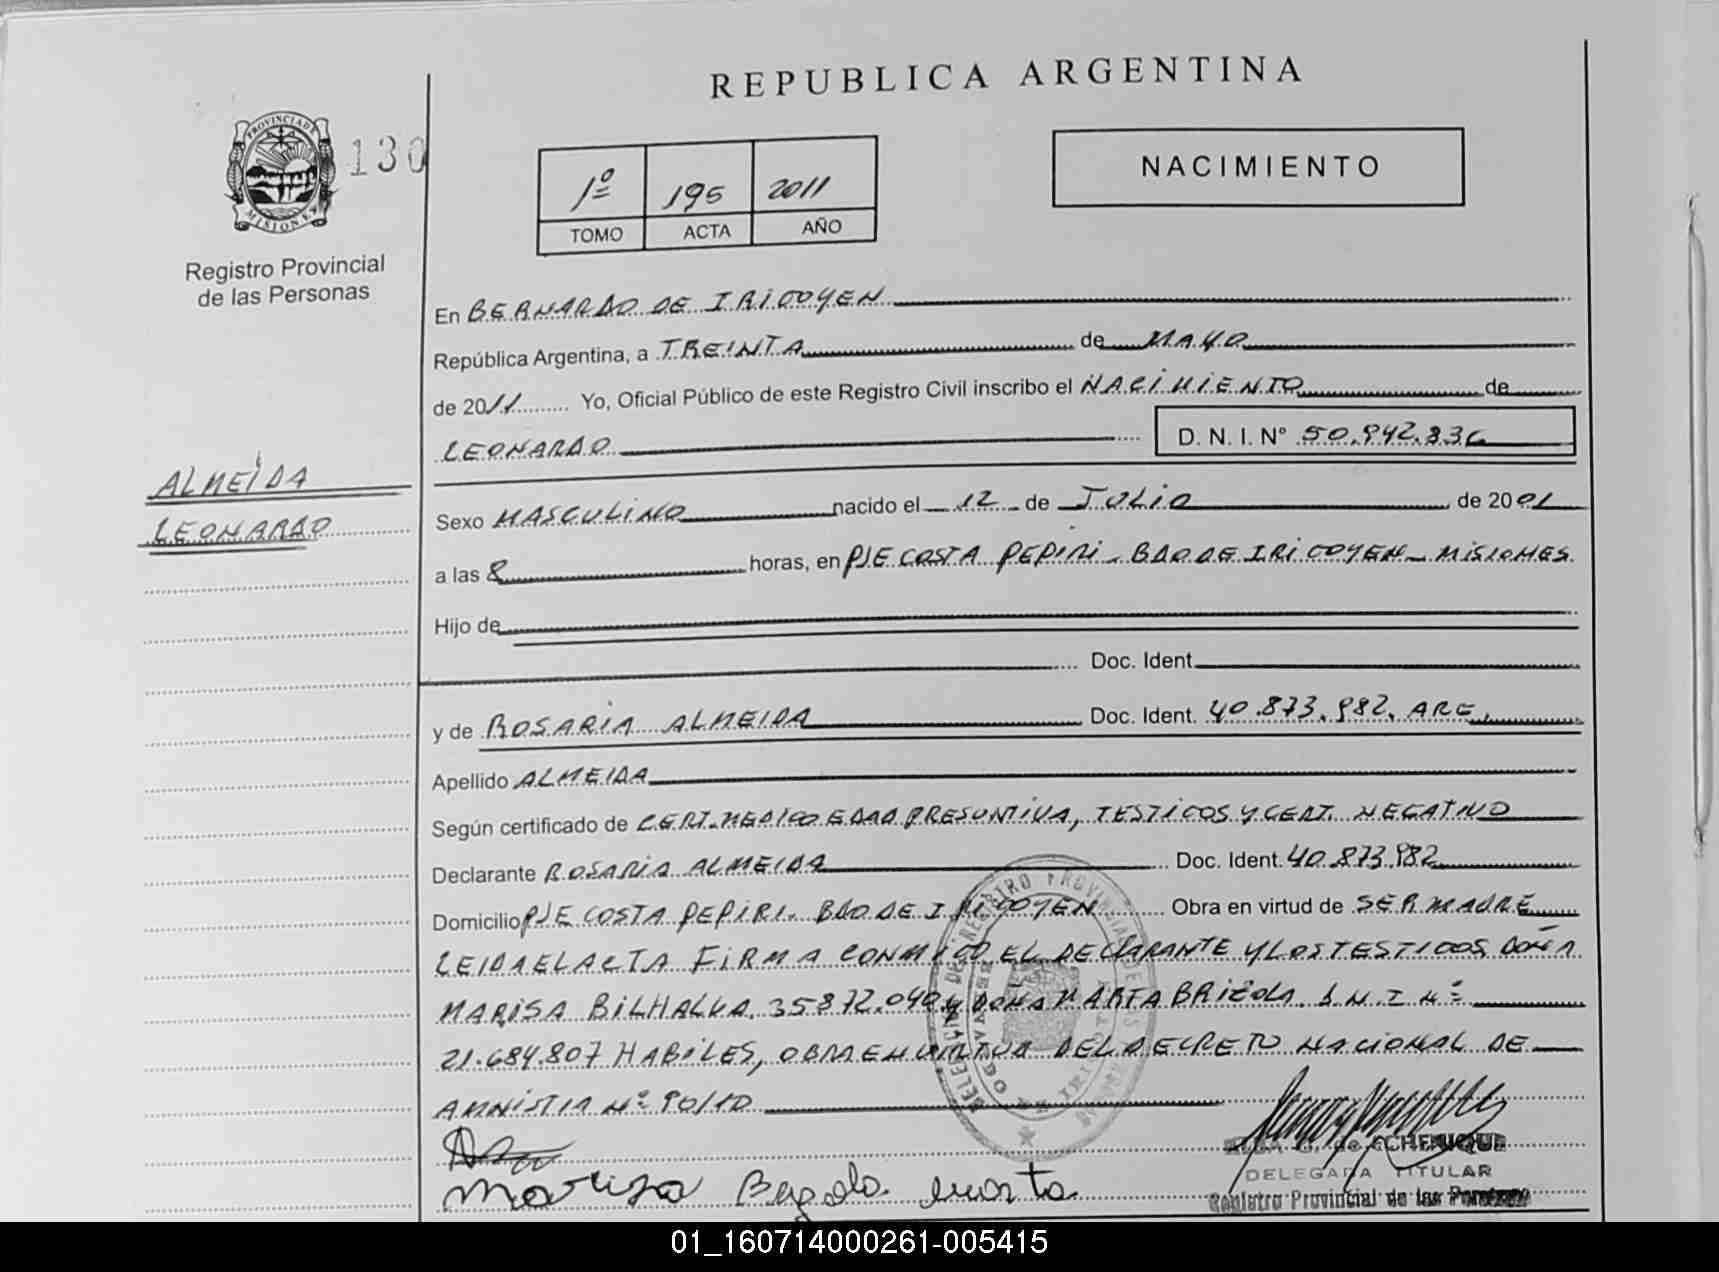 REPUBLICA ARGENTINA
PROVINCIA DE
MISIONES
130
Registro Provincial
de las Personas
1º 195 2011
TOMO ACTA AÑO
NACIMIENTO
En BERNARDO DE IRIGOYEN
República Argentina, a TREINTA de MAYO
de 2011 Yo, Oficial Público de este Registro Civil inscribo el NACIMIENTO de
LEONARDO D. N. I. Nº 50.942.836
ALMEIDA
LEONARDO
Sexo MASCULINO nacido el 12 de JULIO de 2001
a las 8 horas, en PJE COSTA PEPIRI - BDO DE IRIGOYEN - MISIONES
Hijo de
Doc. Ident.
y de ROSARIA ALMEIDA Doc. Ident. 40.873.982. ARG.
Apellido ALMEIDA
Según certificado de CERT. MEDICO EDAD PRESUNTIVA, TESTIGOS Y CERT. NEGATIVO
Declarante ROSARIA ALMEIDA Doc. Ident. 40.873.982
Domicilio PJE COSTA PEPIRI. BDO DE IRIGOYEN Obra en virtud de SER MADRE
LEIDA EL ACTA FIRMA CONMIGO EL DECLARANTE Y LOS TESTIGOS DOÑA
MARISA BILHALVA. 35872.040 y DOÑA MARTA BRIZOLA D N I Nº
21.684.807 HABILES, OBRA EN VIRTUD DEL DECRETO NACIONAL DE
AMNISTIA Nº 90/10
Marisa
Marta
de ECHENIQUE
DELEGADA TITULAR
Registro Provincial de las Personas
01_160714000261-005415